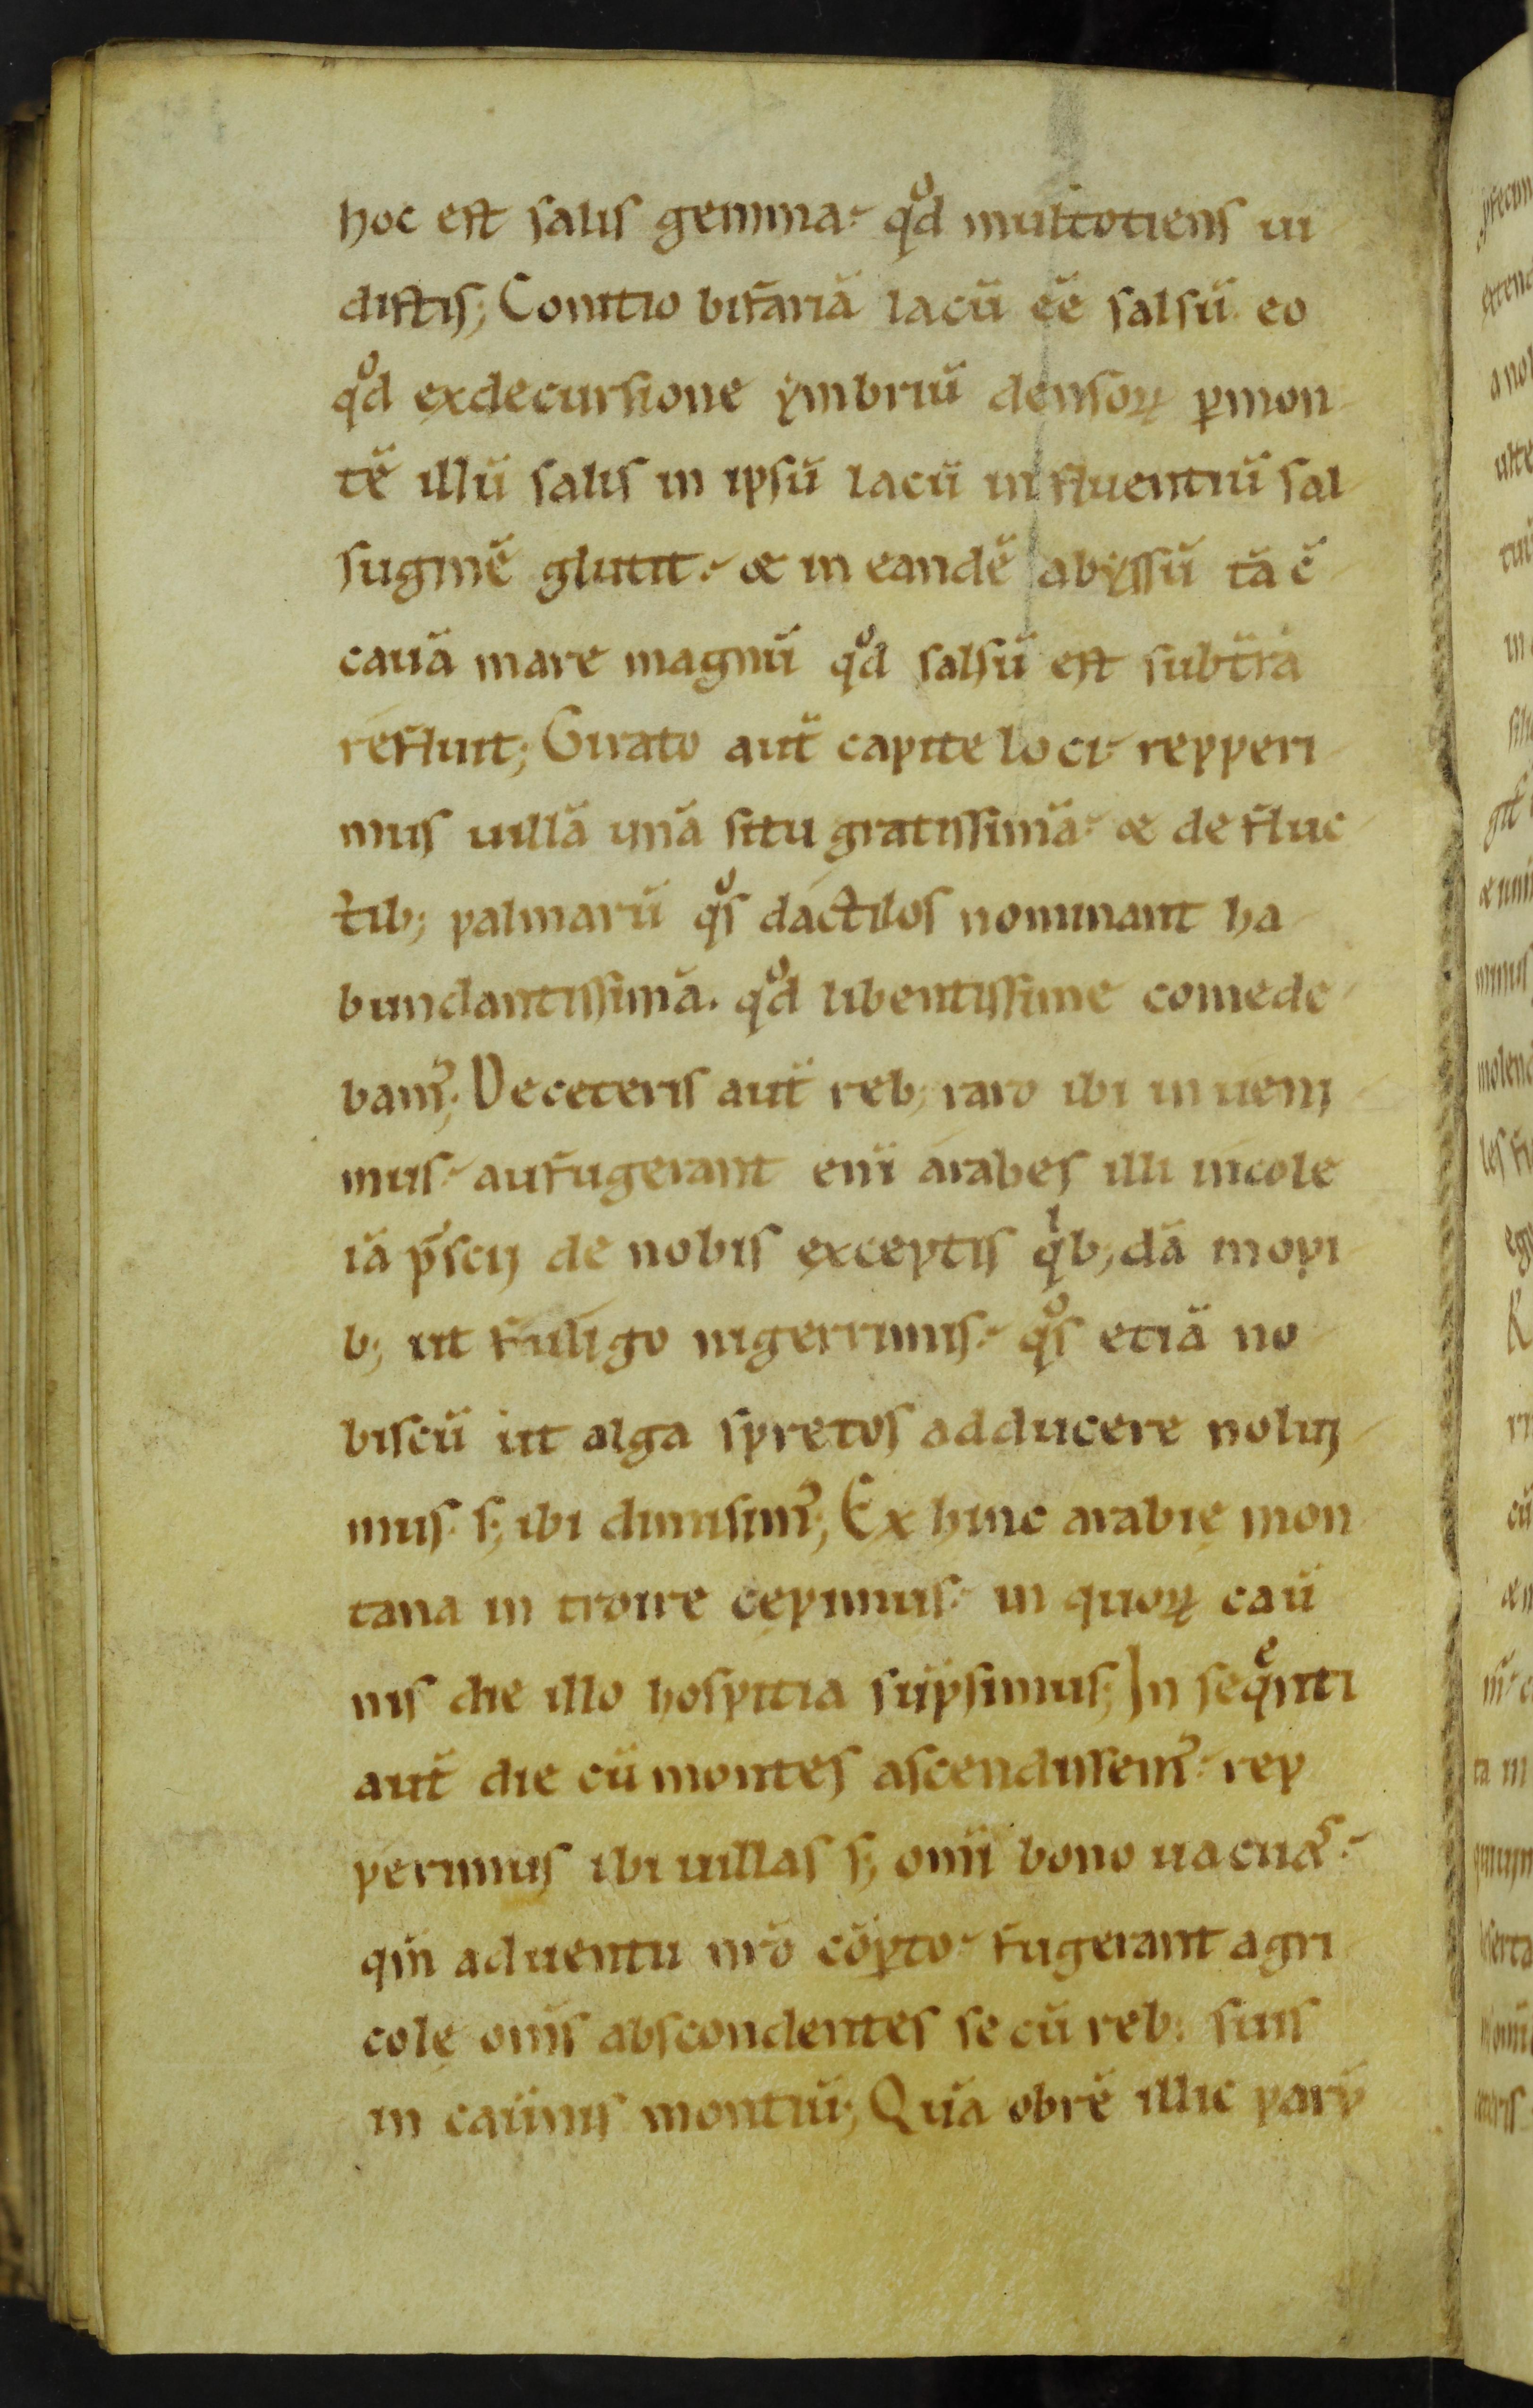 hoc est salis gemma· qͦd multotiens ui
distis; Comitio bifariā lacū eē salsū eo
qͦd exdecursione ẏmbriū densoꝝ ꝑmon
tē illū salis in ipsū lacū influentiū sal
suginē glutit· & in eandē abẏssū tā ē
cauā mare magnū qͦd salsū est subtra
refluit; Girato aut̄ capite loci· repperi
mus uillā unā situ gratissimā· & de fluc
tib; palmarū qͦs dactilos nominant ha
bundantissimā. qͦd libentissime comede
bamꝰ; De ceteris aut̄ reb; raro ibi inueni
mus· aufugerant eni᷑ arabes illi incole
iā p̄scij de nobis exceptis qͥb;dā mopi
b; ut fuligo nigerrimis· qͦs etiā no
biscū ut alga spretos adducere nolui
mus· s; ibi dimisimꝰ; Ex hinc arabię mon
tana introire cępimus· in quoꝝ cau̅
nis die illo hospitia su̅psimus; In seqͤnti
aut̄ die cū montes ascendissemꝰ· rep
perimus ibi uillas s; omi̅ bono uacuas·
qm̅ aduentu nr̄o cōꝑto· fugerant agri
colę om̅s abscondentes se cū reb; suis
in cau̅nis montiū; Quā obrē illic parū